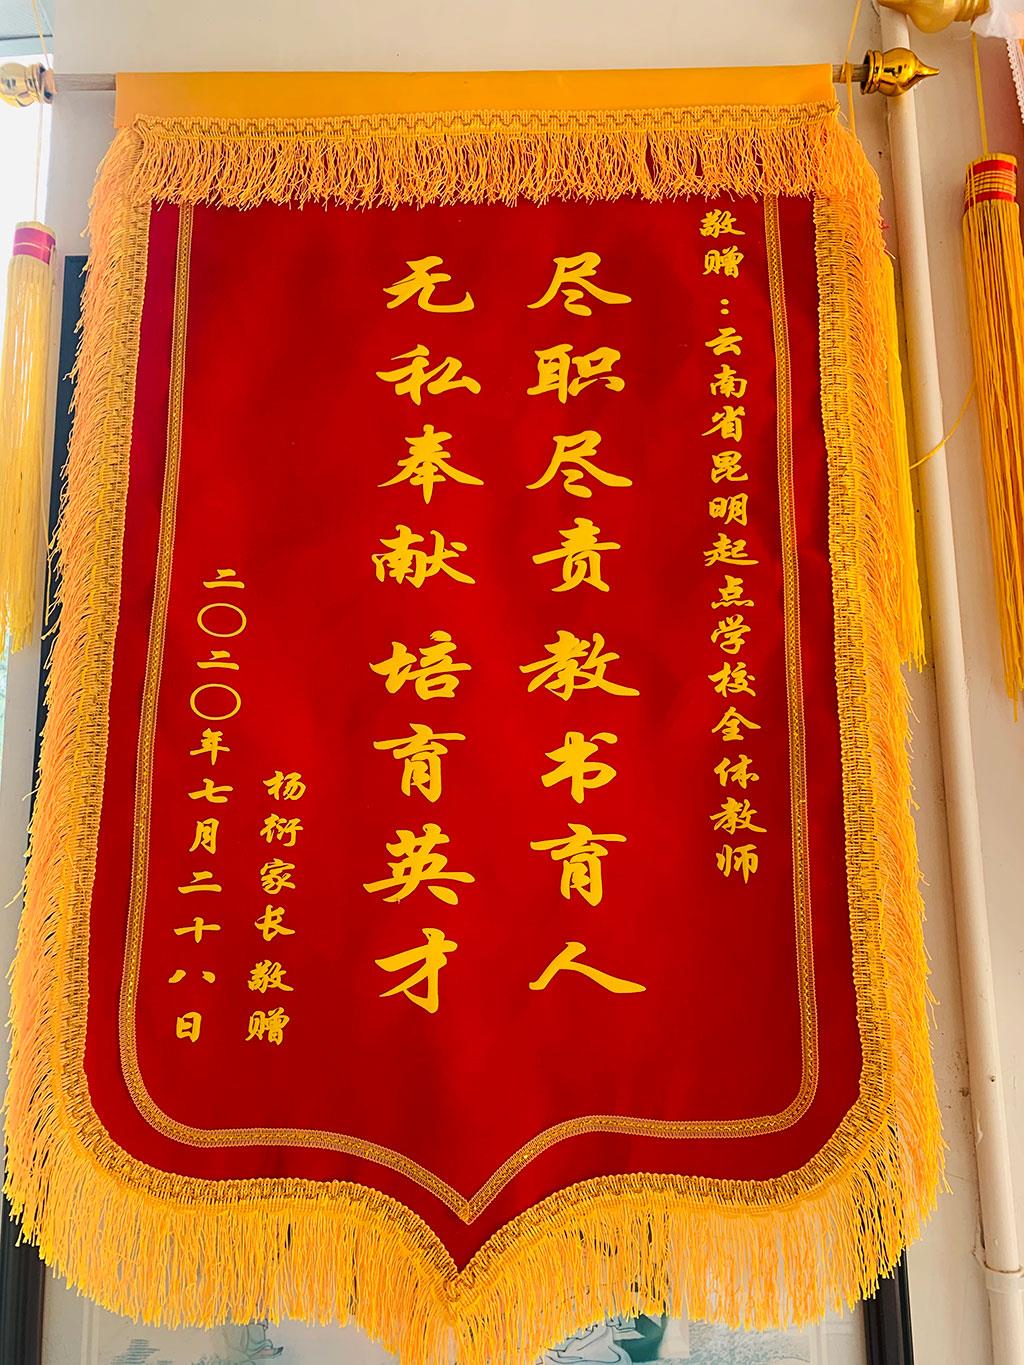 敬赠：云南省昆明起点学校全体教师
尽职尽责教书育人
无私奉献培育英才
杨衍家长敬赠
二〇二〇年七月二十八日